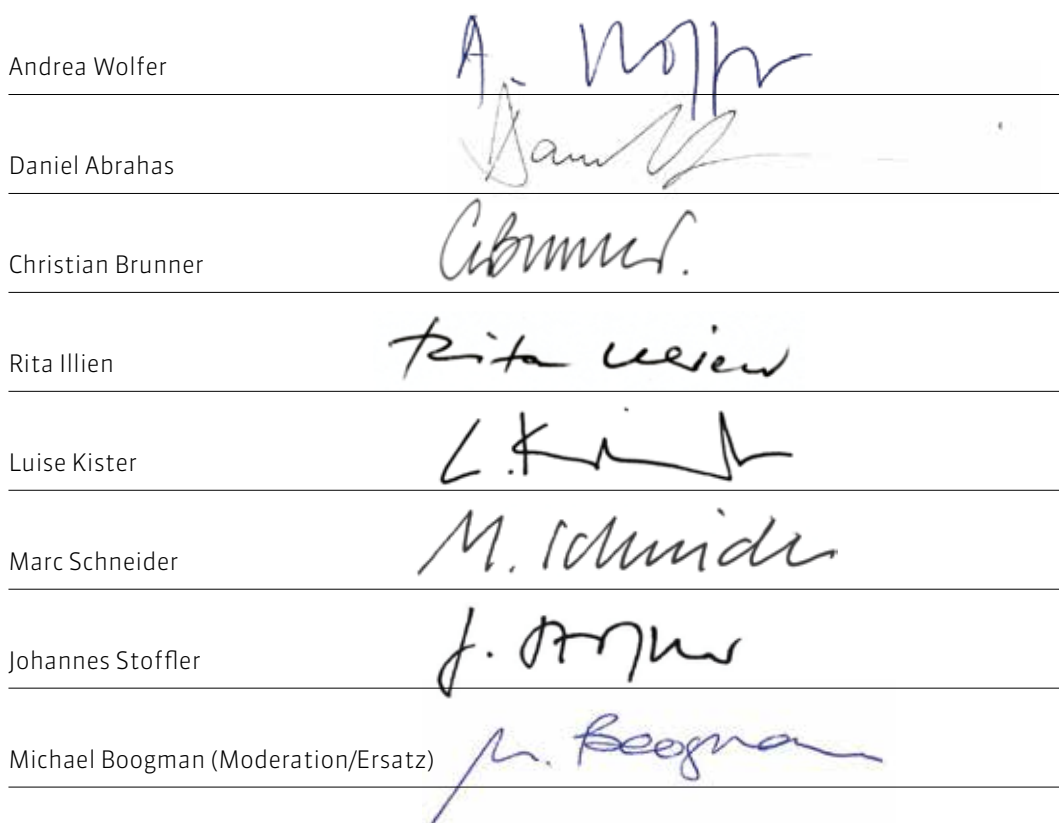 Andrea Wolfer A. Wolfer
Daniel Abrahas
Christian Brunner CBrunner.
Rita Illien Rita Illien
Luise Kister L. Kister
Marc Schneider M. Schneider
Johannes Stoffler J. Stoffler
Michael Boogman (Moderation/Ersatz) M. Boogman